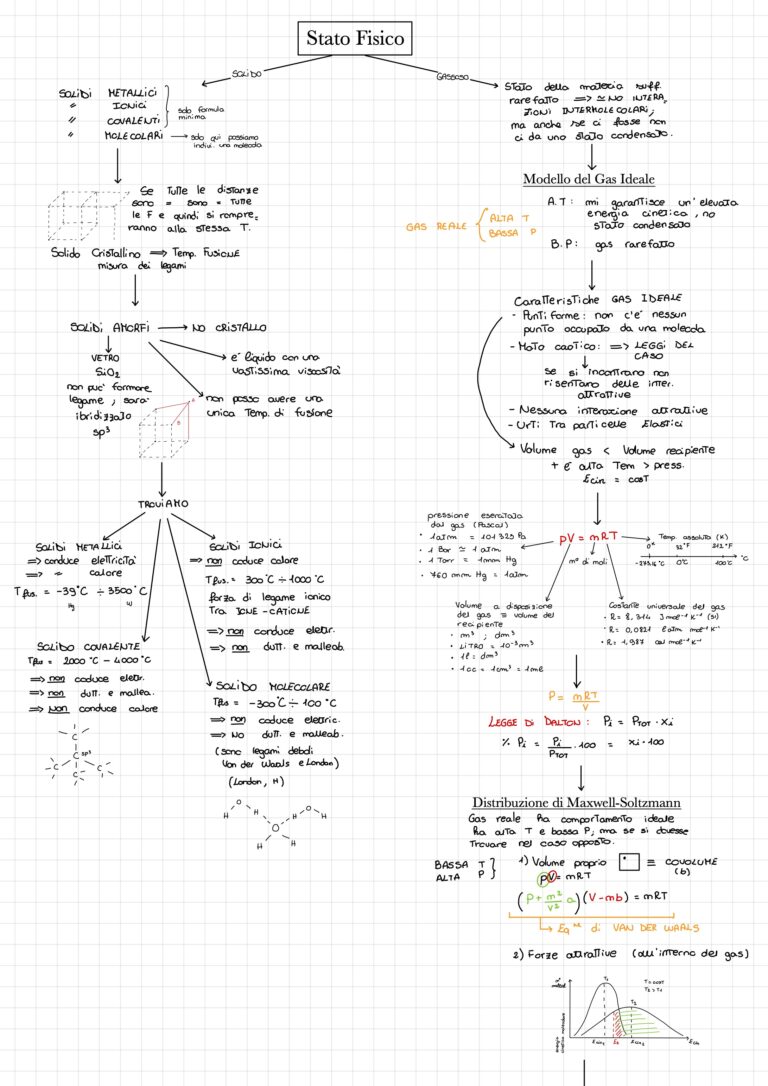 Stato Fisico
SOLIDO
GASSOSO
SOLIDI METALLICI
" IONICI
" COVALENTI
" MOLECOLARI
solo formula
minima
solo qui possiamo
indivi. una molecola
Se TUTTE le distanze
sono = sono = TUTTE
le F e quindi si rompe=
ranno alla stessa T.
Solido Cristallino => Temp. FUSIONE
misura dei legami
SOLIDI AMORFI → NO CRISTALLO
VETRO
SiO2
non può formare
legame, sarà
ibridizzato
sp³
è liquido con una
vastissima viscosità
non posso avere una
unica Temp. di fusione
A
B
TROVIAMO
SOLIDI METALLICI
=> conduce elettricità
=> " calore
T fus. = -39°C ÷ 3500°C
Hg W
SOLIDI IONICI
=> non coduce calore
T fus. = 300°C ÷ 1000°C
forza di legame ionico
Tra IONE - CATIONE
=> non conduce elettr.
=> non dutt. e malleab.
SOLIDO COVALENTE
T fus = 2000°C - 4000°C
=> non coduce elettr.
=> non dutt. e mallea.
=> NON conduce calore
C
C sp³
C C C
SOLIDO MOLECOLARE
T fus = -300°C ÷ 100°C
=> non coduce elettric.
=> NO dutt. e malleab.
(sono legami deboli
Van der Waals e London)
(London, H)
H O H H O H
O
H H
STATO della materia suff.
rarefatto => ≃ NO INTERA=
ZIONI INTERMOLECOLARI;
ma anche se ci fosse non
ci da uno stato condensato.
Modello del Gas Ideale
GAS REALE
ALTA T
BASSA P
A.T: mi garantisce un'elevata
energia cinetica, no
STATO condensato
B.P: gas rarefatto
Caratteristiche GAS IDEALE
- Puntiforme: non c'è nessun
punto occupato da una molecola
- MOTO CAOTICO: => LEGGI DEL
CASO
se si incontrano non
risentano delle inter.
attrattive
- Nessuna interazione attrattive
- Urti Tra particelle Elastici
Volume gas < Volume recipiente
+ è alta Tem > press.
Ecin = cost
pressione esercitata
dal gas (Pascal)
• 1 atm = 101 325 Pa
• 1 Bar ≃ 1 atm
• 1 Torr = 1 mm Hg
• 760 mm Hg = 1 atm
pV = mRT
n° di moli
Temp assoluta (K)
0° 32°F 212°F
-273.16°C 0°C 100°C °C
Volume a disposizione
del gas ≡ volume del
recipiente
• m³; dm³
• LITRO = 10⁻³ m³
• 1l = dm³
• 1cc = 1cm³ = 1ml
Costante universale del gas
• R = 8,314 J mol⁻¹ K⁻¹ (SI)
• R = 0,0821 l atm mol⁻¹ K⁻¹
• R = 1,987 cal mol⁻¹ K⁻¹
P = mRT / V
LEGGE DI DALTON: Pi = PTOT · Xi
% Pi = Pi / PTOT · 100 = xi · 100
Distribuzione di Maxwell-Soltzmann
Gas reale ha comportamento ideale
ha alta T e bassa P; ma se si dovesse
Trovare nel caso opposto.
BASSA T
ALTA P
1) Volume proprio ≡ COVOLUME
(b)
pV = mRT
(P + m²/V² a)(V - mb) = mRT
Eq ne di VAN DER WAALS
2) Forze attrattive (all'interno del gas)
T1
T2
T = cost
T2 > T1
energia
cinetica molecolare
Ecin1 Ea Ecin2 Ecin